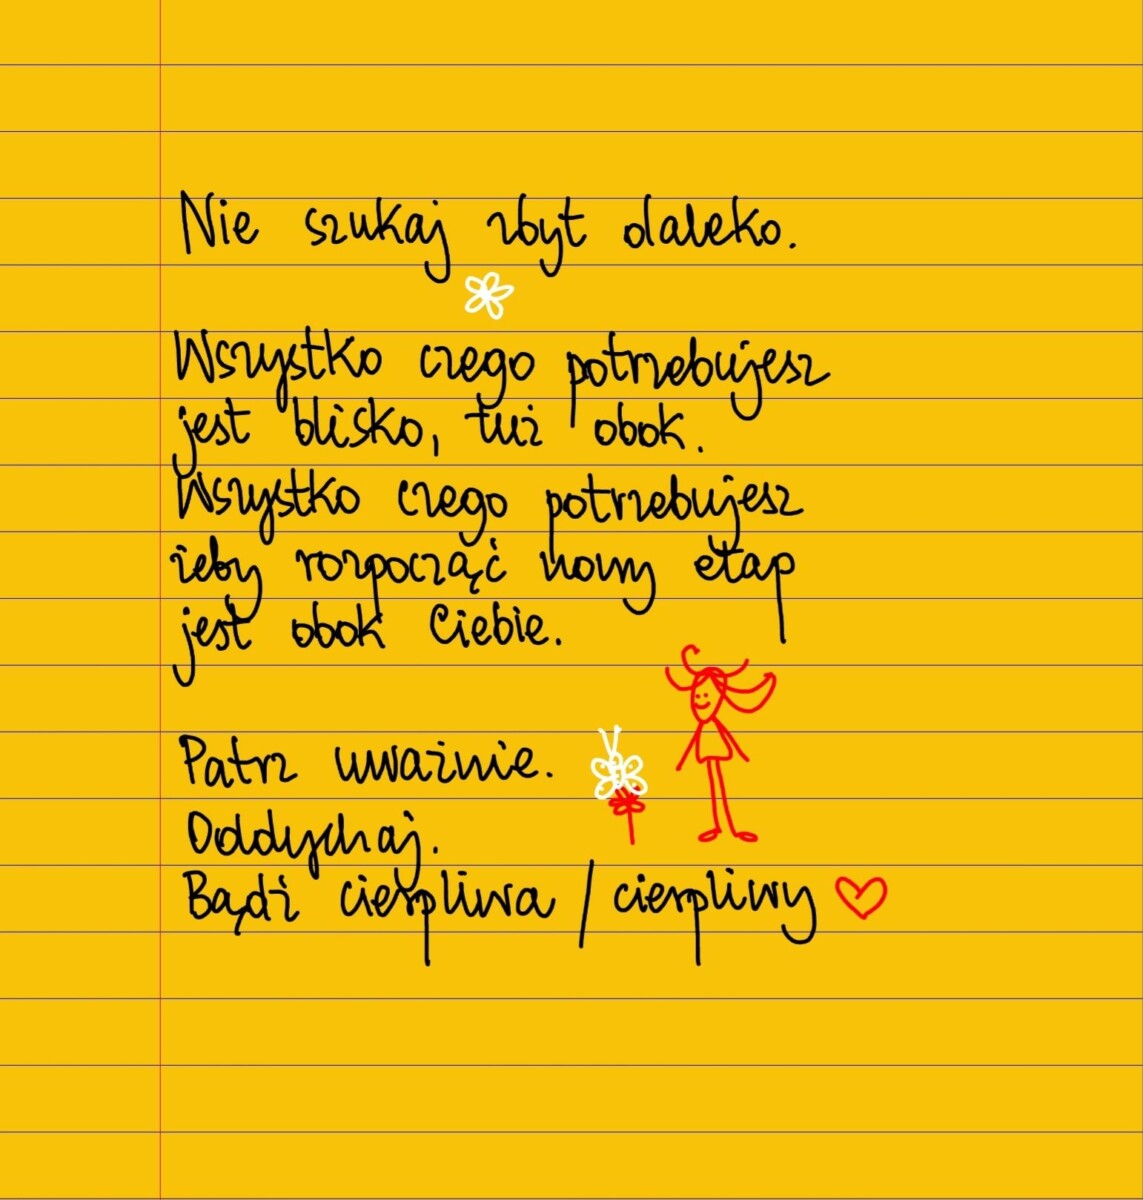 Nie szukaj zbyt daleko.
Wszystko czego potrzebujesz
jest blisko, tuż obok.
Wszystko czego potrzebujesz
żeby rozpocząć nowy etap
jest obok Ciebie.
Patrz uważnie.
Oddychaj.
Bądź cierpliwa / cierpliwy